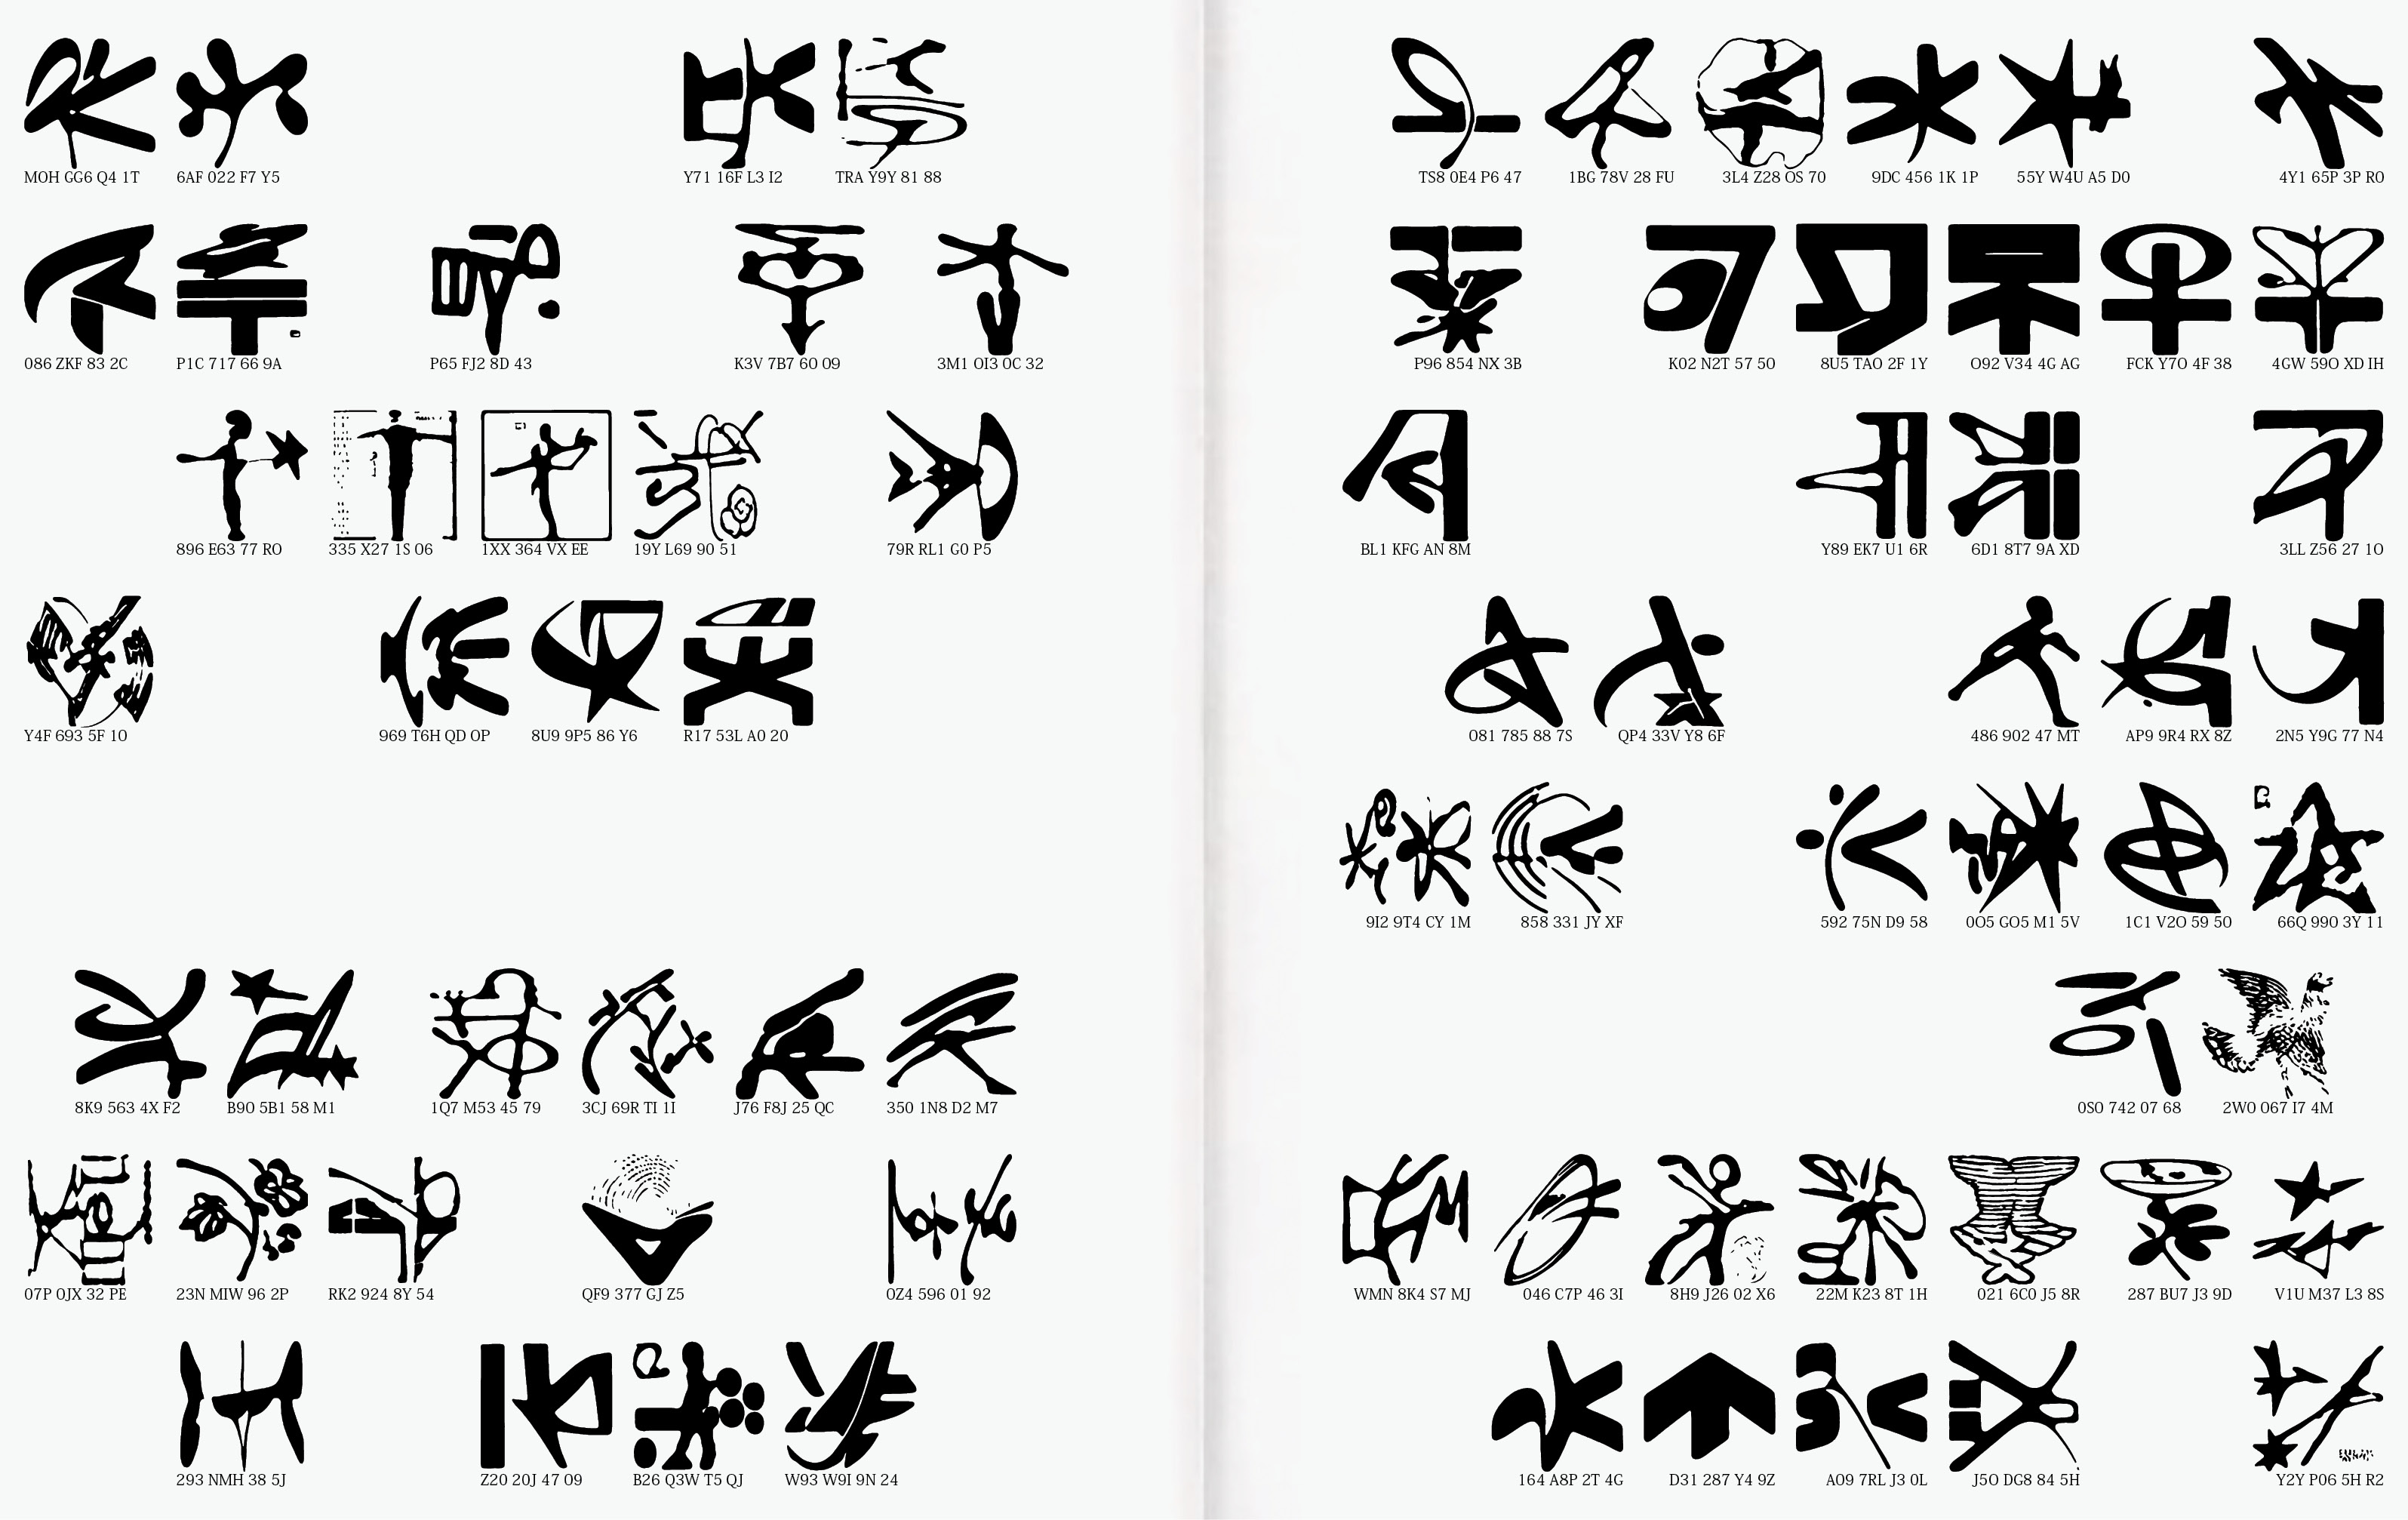 MOH GG6 Q4 1T
6AF 022 F7 Y5
Y71 16F L3 I2
TRA Y9Y 81 88
086 ZKF 83 2C
P1C 717 66 9A
P65 FJ2 8D 43
K3V 7B7 60 09
3M1 OI3 0C 32
896 E63 77 RO
335 X27 1S 06
1XX 364 VX EE
19Y L69 90 51
79R RL1 G0 P5
Y4F 693 5F 10
969 T6H QD OP
8U9 9P5 86 Y6
R17 53L A0 20
8K9 563 4X F2
B90 5B1 58 M1
1Q7 M53 45 79
3CJ 69R TI 1I
J76 F8J 25 QC
350 1N8 D2 M7
07P 0JX 32 PE
23N MIW 96 2P
RK2 924 8Y 54
QF9 377 GJ Z5
0Z4 596 01 92
293 NMH 38 5J
Z20 20J 47 09
B26 Q3W T5 QJ
W93 W9I 9N 24
TS8 0E4 P6 47
1BG 78V 28 FU
3L4 Z28 OS 70
9DC 456 1K 1P
55Y W4U A5 D0
4Y1 65P 3P RO
P96 854 NX 3B
K02 N2T 57 50
8U5 TAO 2F 1Y
O92 V34 4G AG
FCK Y70 4F 38
4GW 59O XD IH
BL1 KFG AN 8M
Y89 EK7 U1 6R
6D1 8T7 9A XD
3LL Z56 27 1O
081 785 88 7S
QP4 33V Y8 6F
486 902 47 MT
AP9 9R4 RX 8Z
2N5 Y9G 77 N4
9I2 9T4 CY 1M
858 331 JY XF
592 75N D9 58
0O5 GO5 M1 5V
1C1 V2O 59 50
66Q 990 3Y 11
0S0 742 07 68
2W0 067 I7 4M
WMN 8K4 S7 MJ
046 C7P 46 3I
8H9 J26 02 X6
22M K23 8T 1H
021 6C0 J5 8R
287 BU7 J3 9D
V1U M37 L3 8S
164 A8P 2T 4G
D31 287 Y4 9Z
A09 7RL J3 0L
J5O DG8 84 5H
Y2Y P06 5H R2